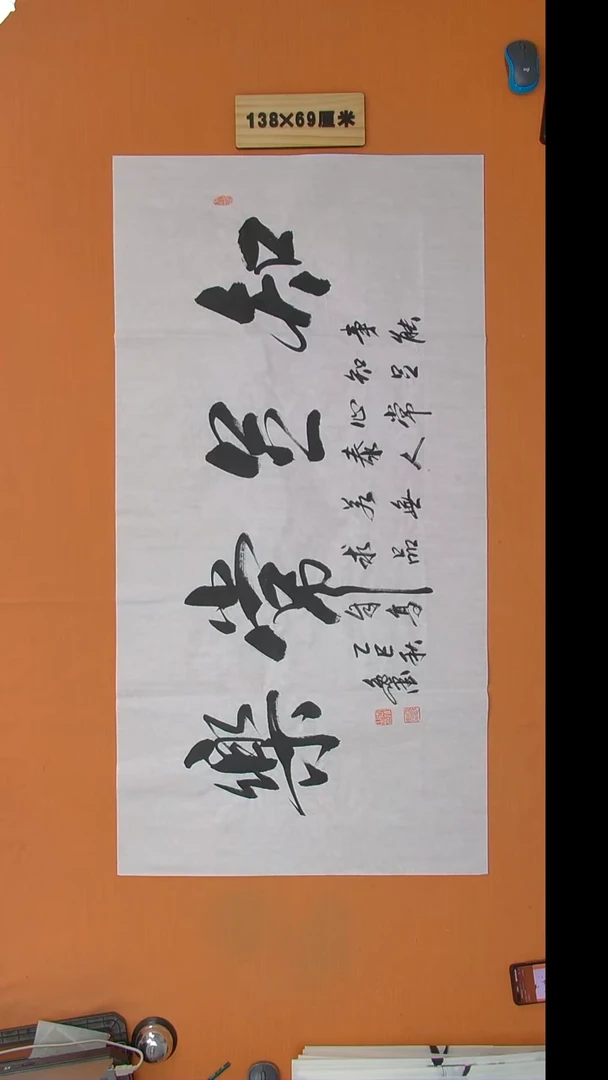 138×69厘米
知足常樂
事能
知足
心常
泰人
若無
求品
自高
乙巳秋